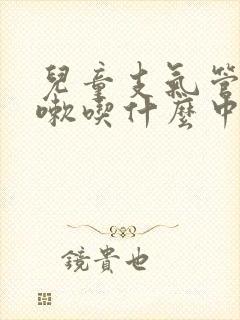 兒童支氣管
嗽喫什麼中
鏡貴也